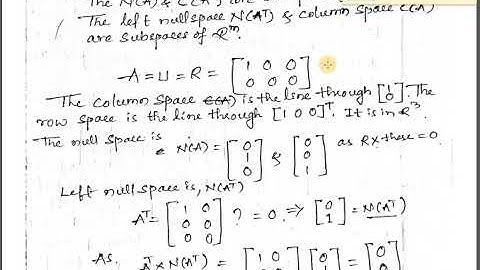 The N(A) & C(AT) are
The left nullspace N(AT) & column space C(A)
are subspaces of Rm.
A = U = R = [1 0 0
0 0 0]
The column space C(A) is the line through [1
0]. The
row space is the line through [1 0 0]T. It is in R3
The null space is
N(A) = [0
1
0] & [0
0
1] as R x these = 0
Left null space is, N(AT)
AT = [1 0
0 0
0 0] ? = 0. => [0
1] = N(AT)
As. AT x N(AT) = [1 0
0 0] [0
1] = [0
0]